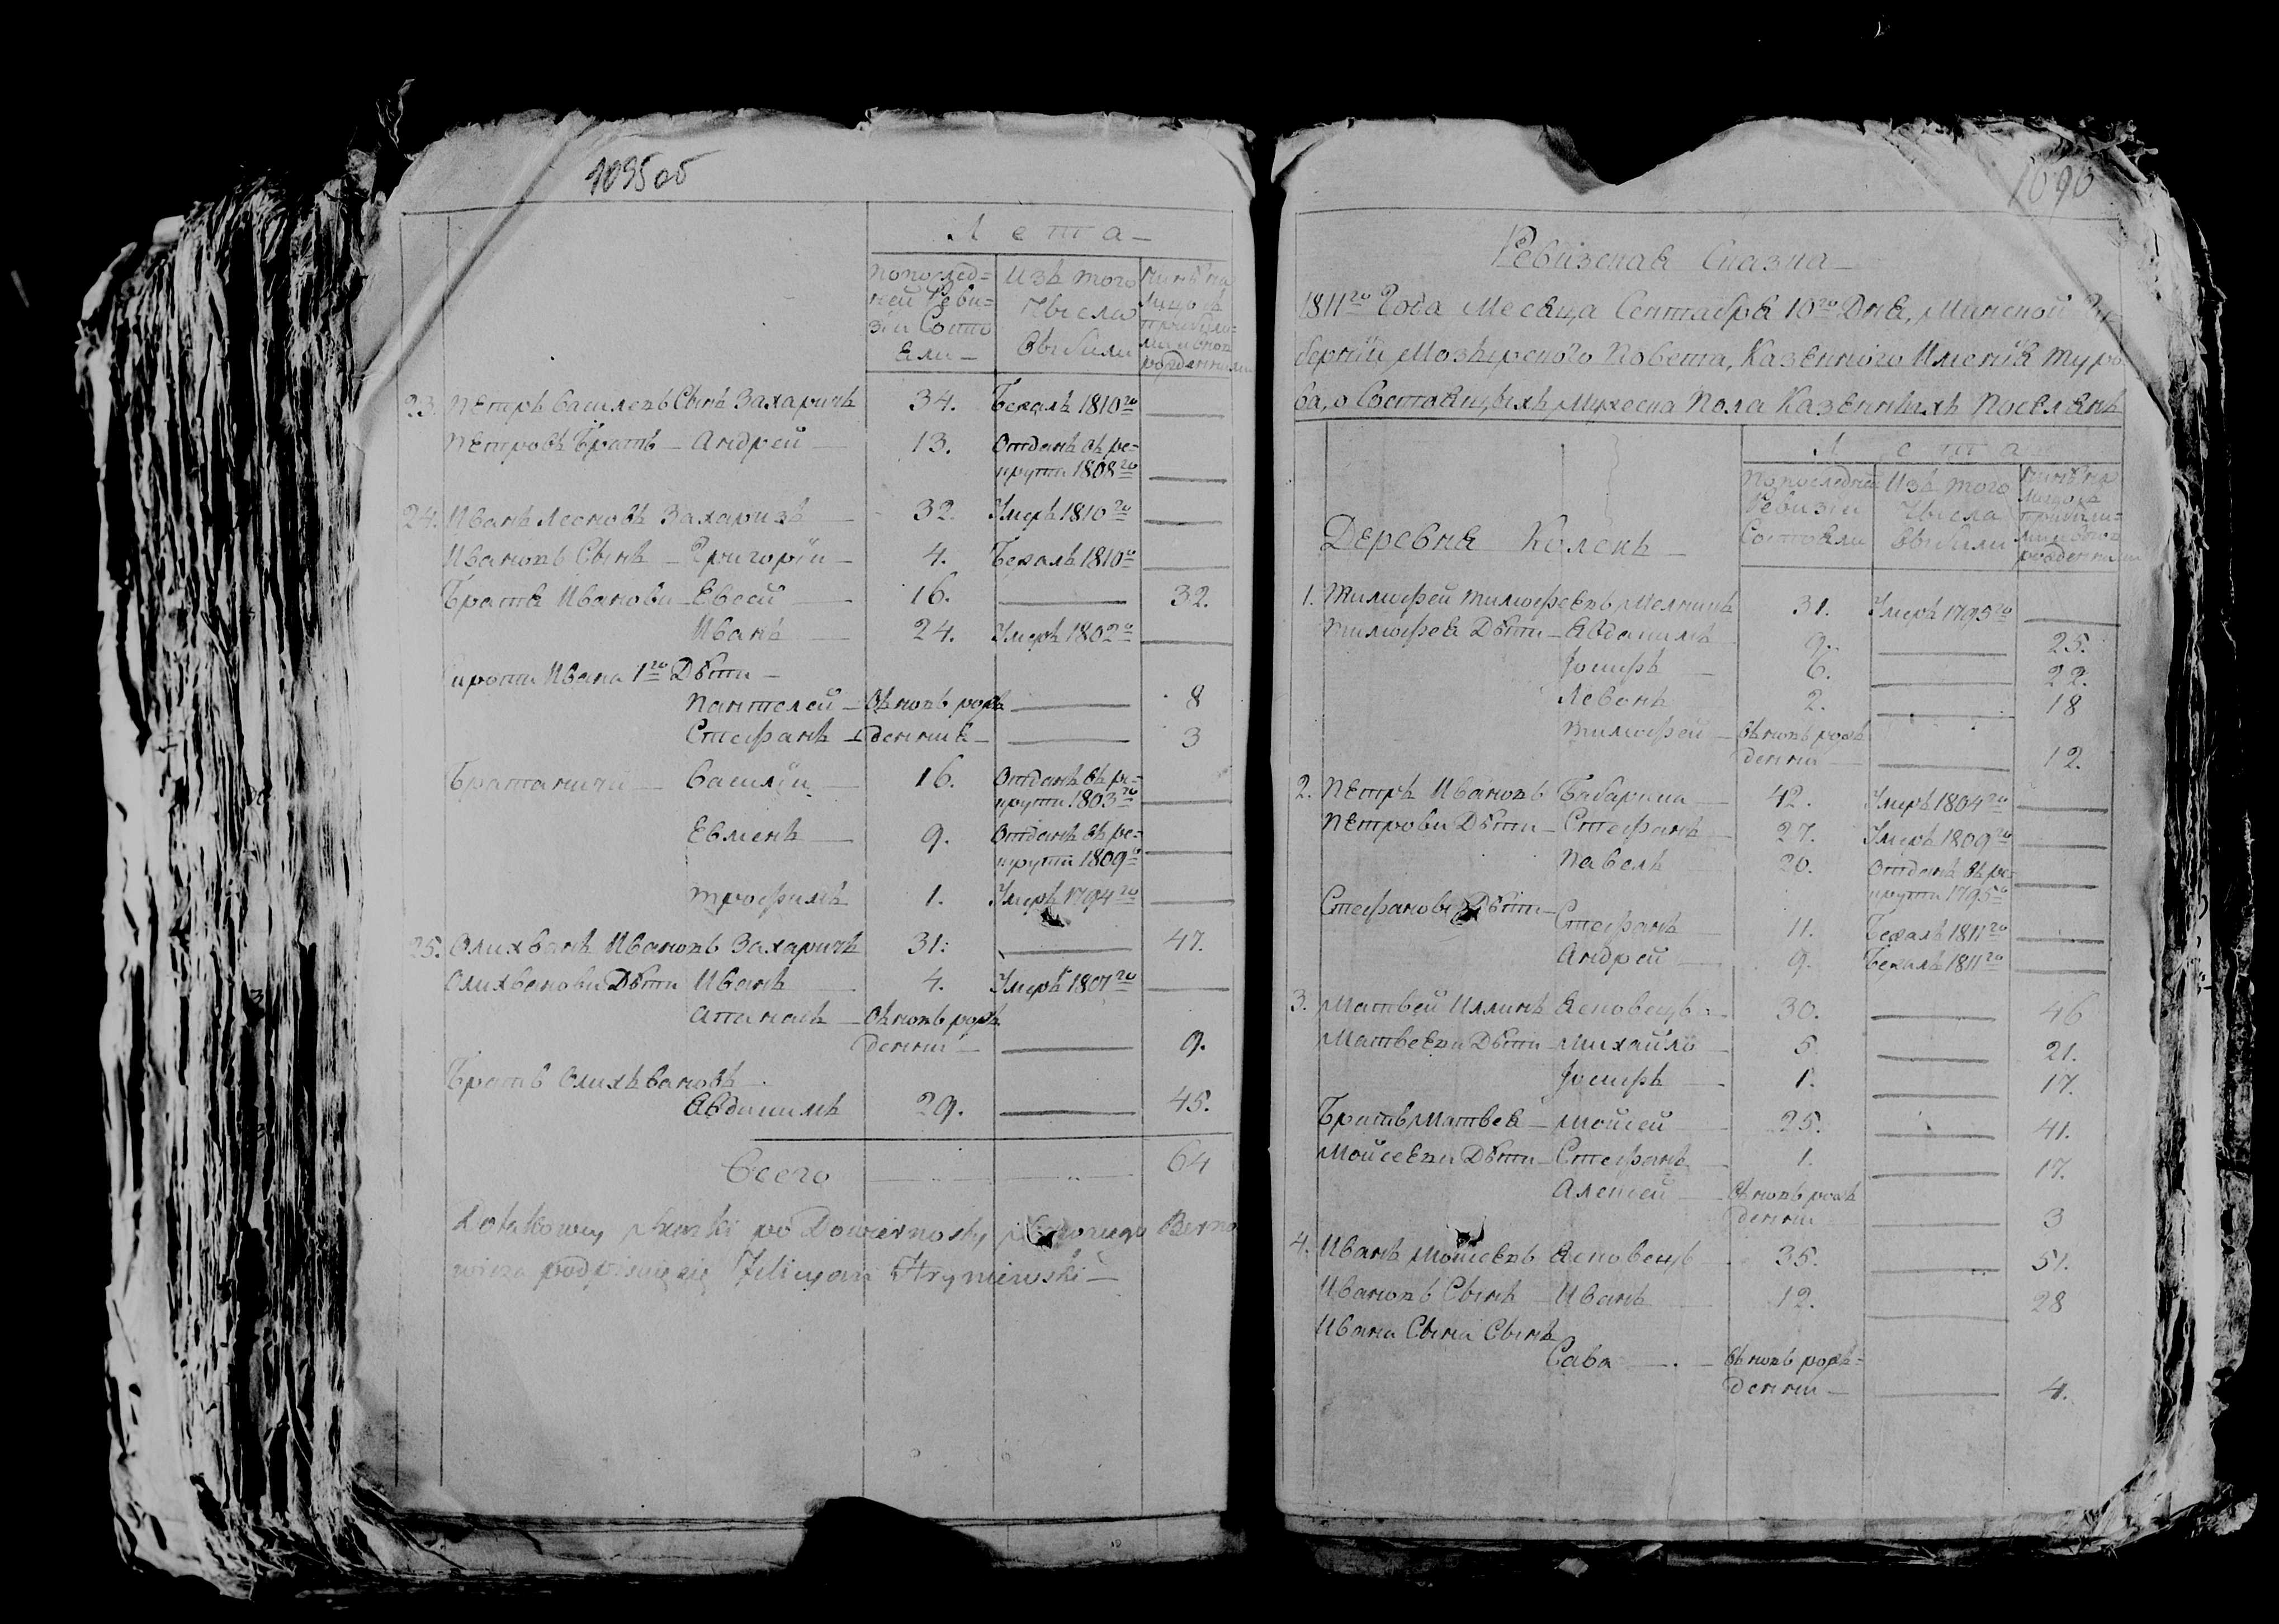 1095 об
Лета
по послед=
ней Реви=
зіи Состо
яли
Изъ того
Числа
Выбыли
23. Петръ Василевъ Сынъ Захаричъ 34. Бежалъ 1810го
Петровъ Братъ Андрей 13. Отданъ въ ре=
крути 1808го
24. Иванъ Леоновъ Захаричъ 32. Умеръ 1810го
Ивановъ Сынъ Григорій 4. Бежалъ 1810го
Братя Иванови Евсей 16. 32.
Иванъ 24. Умеръ 1802го
Сироти Ивана 1го Дѣти
Пантелей въ новъ рож 8
Стефанъ денни 3
Братаничи Василій 16. Отданъ въ ре=
крути 1803го
Евменъ 9. Отданъ въ ре=
крути 1809го
Трофимъ 1. Умеръ 1794го
25. Олихванъ Ивановъ Захаричъ 31. 47.
Олихванови Дѣти Иванъ 4. Умеръ 1807го
Апанасъ въ новъ рож
денни 9.
Братъ Олихвановъ
Авдакимъ 29. 45.
Всего 64
Felicyan Hryniewski
1096
Ревизская Сказка
1811го Года Месяца Сентабря 10го Дня, Минской Гу
берніи Мозырского Повета, Казенного Именія Туро
ва, о Состоящихъ Мужеска Пола Казенныхъ Поселянъ
Лета
По последней
Ревизіи
Состояли
Изъ того
Числа
Выбыли
Деревня Коленъ
1. Тимофей Тимофеевъ Мелникъ 31. Умеръ 1795го
Тимофея Дѣти Авдакимъ 9. 25.
Іосифъ 6. 22.
Левонъ 2. 18
Тимофей въ новъ рож
денни 12.
2. Петръ Ивановъ Бабарика 42. Умеръ 1804го
Петрови Дѣти Стефанъ 27. Умеръ 1809го
Павелъ 20. Отданъ въ ре=
крути 1795го
Стефанови Дѣти
Стефанъ 11. Бежалъ 1811го
Андрей 9. Бежалъ 1811го
3. Матвей Иллинъ Ясковецъ 30. 46
Матвееви Дѣти Михайло 5 21.
Іосифъ 1. 17.
Братъ Матвея Мойсей 25. 41.
Мойсееви Дѣти Стефанъ 1. 17.
Алексей въ новъ рож
денни 3
4. Иванъ Мойсеевъ Ясковецъ 35. 51.
Ивановъ Сынъ Иванъ 12. 28
Ивана Сына Сынъ
Сава въ новъ рож=
денни 4.